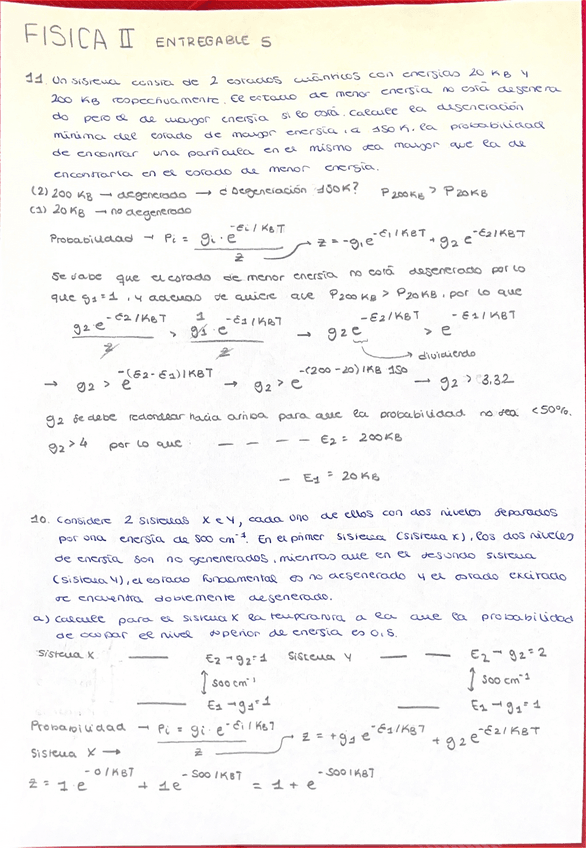 FISICA II ENTREGABLE 5
11 Un sistema consta de 2 estados cuánticos con energías 20 KB y
200 KB respectivamente. El estado de menor energía no está degenera
do pero el de mayor energía si lo está. Calcule la degeneración
mínima del estado de mayor energía, a 150 K, la probabilidad
de encontrar una partícula en el mismo sea mayor que la de
encontrarla en el estado de menor energía.
(2) 200 KB → degenerado → ¿Degeneración 150K? P200KB > P20KB
(1) 20 KB → no degenerado
Probabilidad → Pi = gi·e^-Ei/KBT / z → z = -g1e^-E1/KBT + g2 e^-E2/KBT
Se sabe que el estado de menor energía no está degenerado por lo
que g1=1, y además se quiere que P200KB > P20KB, por lo que
g2·e^-E2/KBT / z > g1·e^-E1/KBT / z 1 → g2e^-E2/KBT > e^-E1/KBT
dividiendo
→ g2 > e^-(E2-E1)/KBT → g2 > e^-(200-20)/KB 150 → g2 > 3,32
g2 se debe redondear hacia arriba para que la probabilidad no sea <50%.
g2 > 4 por lo que — — — — E2 = 200KB
— E1 = 20KB
10. Considere 2 sistemas X e Y, cada uno de ellos con dos niveles separados
por una energía de 500 cm^-1. En el primer sistema (sistema X), los dos niveles
de energía son no genenerados, mientras que en el segundo sistema
(sistema Y), el estado fundamental es no degenerado y el estado excitado
se encuentra doblemente degenerado.
a) Calcule para el sistema X la temperatura a la que la probabilidad
de ocupar el nivel superior de energía es 0,5.
Sistema X —— E2→g2=1 Sistema Y — —— E2→g2=2
↕500 cm^-1 ↕500 cm^-1
—— E1→g1=1 —— E1→g1=1
Probabilidad → Pi = gi·e^-Ei/KBT / z → z = +g1 e^-E1/KBT + g2e^-E2/KBT
Sistema X →
z = 1·e^-0/KBT + 1e^-500/KBT = 1 + e^-500/KBT